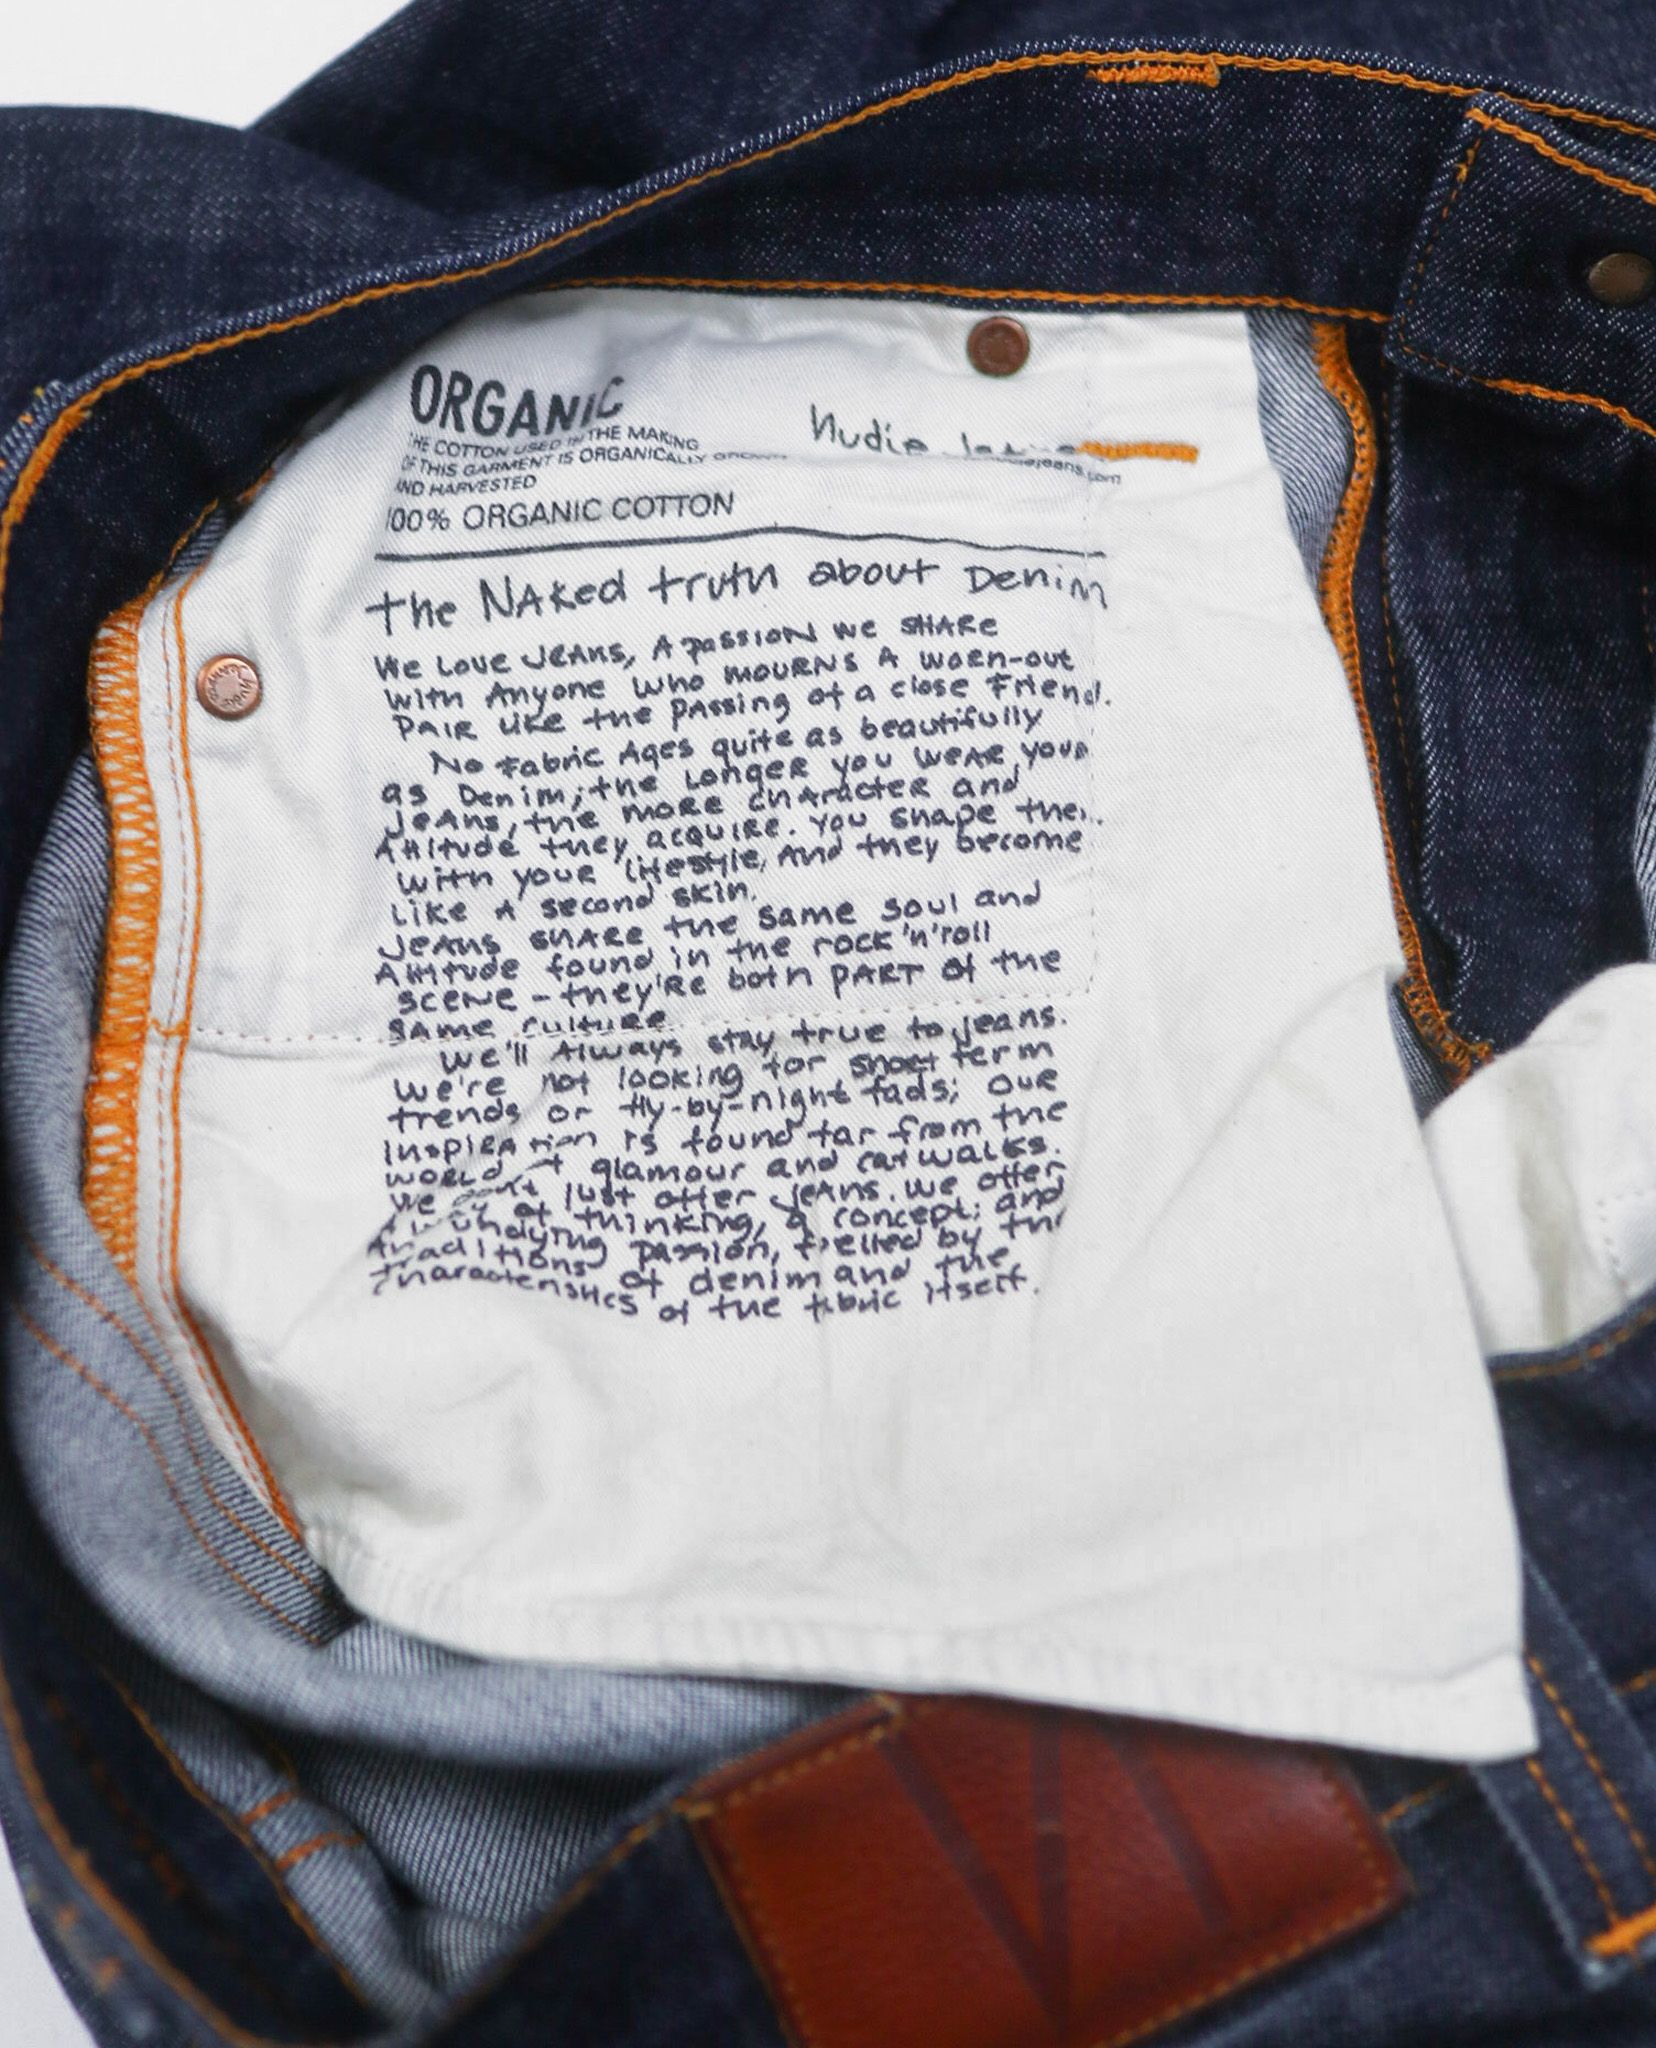 ORGANIC
THE COTTON USED IN THE MAKING
OF THIS GARMENT IS ORGANICALLY GROWN
AND HARVESTED
100% ORGANIC COTTON
Nudie
jeans.com
the NAKed truth about Denim
We Love JEANS, A passion we SHARE
with Anyone who mourns A worn-out
PAIR LIKE the PASSing of a close Friend.
No Fabric Ages quite as beautifully
as Denim; the Longer you wear your
JeAns, the more character and
Attitude they acquire. You shape them
with your lifestyle, And they become
Like A second skin.
JeAns SHARE the same soul and
Attitude found in the rock 'n' roll
scene - they're both PART of the
same culture.
We'll Always stay true to jeans.
we're not looking for short term
trends or fly-by-night fads; our
Inspiration is found far from the
world of glamour and catwalks.
We don't just offer JeAns. We offer
A way of thinking, a concept; and
An undying passion, fuelled by the
traditions of denim and the
characteristics of the fabric itself.